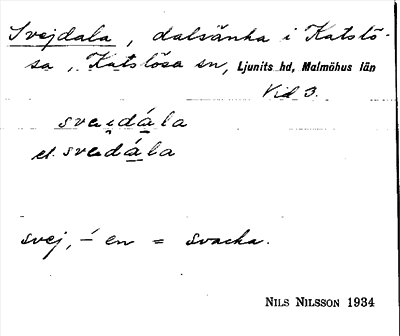 Svejdala, dalsänka i Katslö-
sa, Katslösa sn, Ljunits hd, Malmöhus län
Vid 3.
sveidála
el. svedála
svej, -en = svacka.
NILS NILSSON 1934